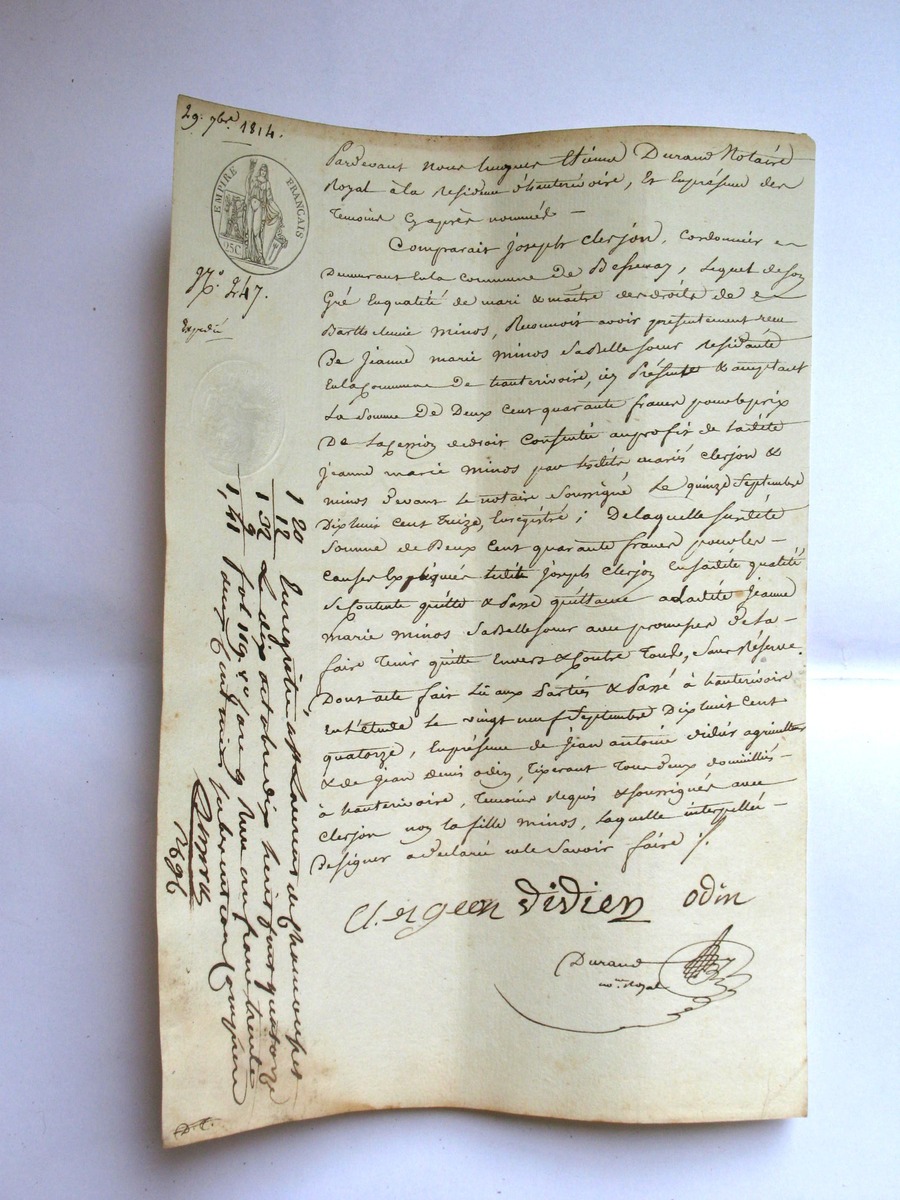 29. 7bre 1814.
EMPIRE FRANÇAIS
25C
No. 247.
Expedié
Pardevant Nous hugues Etienne Durand Notaire
Royal à la Residence d'hauterivoire, Et Enpresence des
Temoins Cyaprès nommés —
Comparait joseph Clerjon, Cordonnier
Demeurant Enla Commune De Bessenay, Lequel deson
Gré Enqualité de mari & maitre des droits de
Barthelemie Minos, Reconnoit avoir présentement recu
De Jeanne marie Minos SaBelle soeur residante
EnlaCommune De hauterivoire, icy Présente & acceptant
La Somme De Deux Cent quarante francs pour leprix
De LaCession dedroit Consentie auprofit de Ladite
Jeanne marie Minos par lesdits mariés Clerjon &
minos Devant Le notaire Soussigné Le quinze Septembre
Dix huit Cent Treize, Enregistré ; Delaquelle susdite
Somme de Deux Cent quarante francs pour les
Causes Expliquées ledit joseph Clerjon Ensadite qualité
Se Contente quitte & Passe quittance aladite Jeanne
Marie Minos SaBelle soeur avec promesse De la
faire Tenir quitte Envers & Contre Tous, Sans Réserve.
Dont acte fait Lû aux Parties & Passé à hauterivoire
En l'étude Le vingt neuf Septembre Dix huit Cent
quatorze, Enpresence de Jean antoine Didier agriculteur
& de Jean Denis odin, Tisserant Tous deux domiciliés
à hauterivoire, Temoins Requis & Soussignés avec
Clerjon non la fille Minos, Laquelle interpellée
De signer a Declaré ne le Savoir faire ./.
Clergeon Didien odin
Durand
no.re Royal
1 20
12
1 32
9
1,41
Enregistré à St Laurent de Chamousset
Le dix octobre dix huit cent quatorze
fol 119 Ro Case 9 Recu un franc trente
deux Centimes subvention Comprise
D. C.